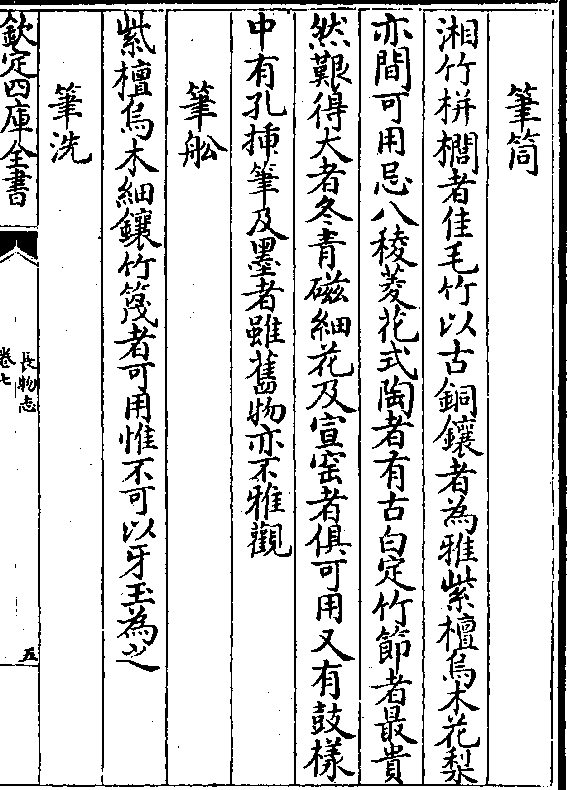 筆筒
湘竹栟櫚者佳毛竹以古銅鑲者為雅紫檀烏木花梨
亦間可用忌八稜菱花式陶者有古白定竹節者最貴
然艱得大者冬青磁細花及宣窑者俱可用又有鼓樣
中有孔揷筆及墨者雖舊物亦不雅觀
筆船
紫檀烏木細鑲竹篾者可用惟不可以牙玉為之
筆洗
欽定四庫全書
長物志
卷七
五